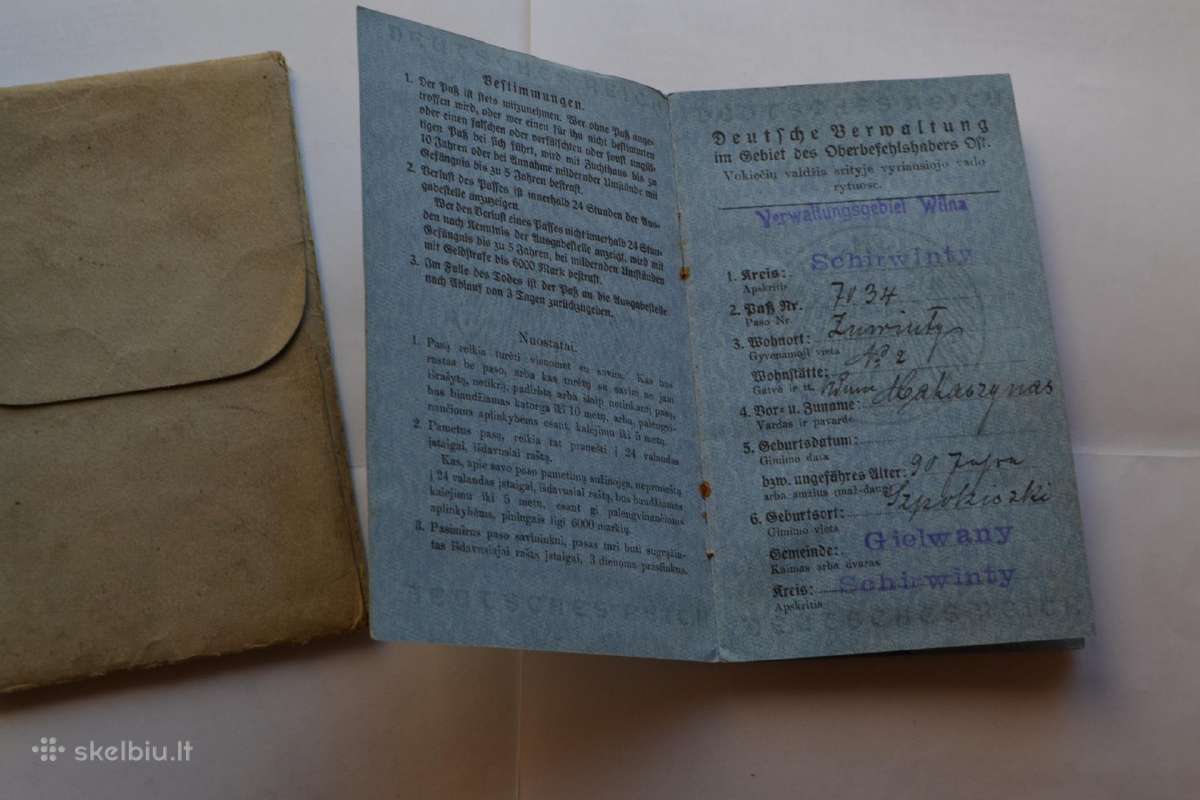 Bestimmungen.
1. Der Paß ist stets mitzunehmen. Wer ohne Paß ange-
troffen wird, oder wer einen für ihn nicht bestimmten
oder einen falschen oder verfälschten oder sonst ungül-
tigen Paß bei sich führt, wird mit Zuchthaus bis zu
10 Jahren oder bei Annahme mildernder Umstände mit
Gefängnis bis zu 5 Jahren bestraft.
2. Verlust des Passes ist innerhalb 24 Stunden der Aus-
gabestelle anzuzeigen.
Wer den Verlust eines Passes nicht innerhalb 24 Stun-
den nach Kenntnis der Ausgabestelle anzeigt, wird mit
Gefängnis bis zu 5 Jahren, bei mildernden Umständen
mit Geldstrafe bis 6000 Mark bestraft.
3. Im Falle des Todes ist der Paß an die Ausgabestelle
nach Ablauf von 3 Tagen zurückzugeben.
Nuostatai.
1. Pasą reikia turėti visuomet su savim. Kas bus
rastas be paso, arba kas turėtų su savim ne jam
išrašytą, netikrą, padirbtą arba šiaip netinkantį pasą,
bus baudžiamas katorga iki 10 metų, arba, palengvi-
nančioms aplinkybėms esant, kalėjimu iki 5 metų.
2. Pametus pasą, reikia tat pranešti į 24 valandas
įstaigai, išdavusiai raštą.
Kas, apie savo paso pametimą sužinojęs, nepraneštų
į 24 valandas įstaigai, išdavusiai raštą, bus baudžiamas
kalėjimu iki 5 metų, esant gi palengvinančioms
aplinkybėms, piningais ligi 6000 markių.
3. Pasimirus paso savininkui, pasas turi būti sugrąžin-
tas išdavusiajai raštą įstaigai, 3 dienoms praslinkus.
Deutsche Verwaltung
im Gebiet des Oberbefehlshabers Ost.
Vokiečių valdžia srityje vyriausiojo vado
rytuose.
Verwaltungsgebiet Wilna
1. Kreis: Schirwinty
Apskritis
2. Paß Nr. 7034
Paso Nr
3. Wohnort:
Gyvenamoji vieta
Wohnstätte: No 2
Gatvė ir n.
4. Vor= u. Zuname:
Vardas ir pavardė
5. Geburtsdatum:
Gimimo data
bzw. ungefähres Alter: 90
arba amžius (maž-daug)
6. Geburtsort:
Gimimo vieta
Gemeinde: Gielwany
Kaimas arba dvaras
Kreis: Schirwinty
Apskritis
skelbiu.lt